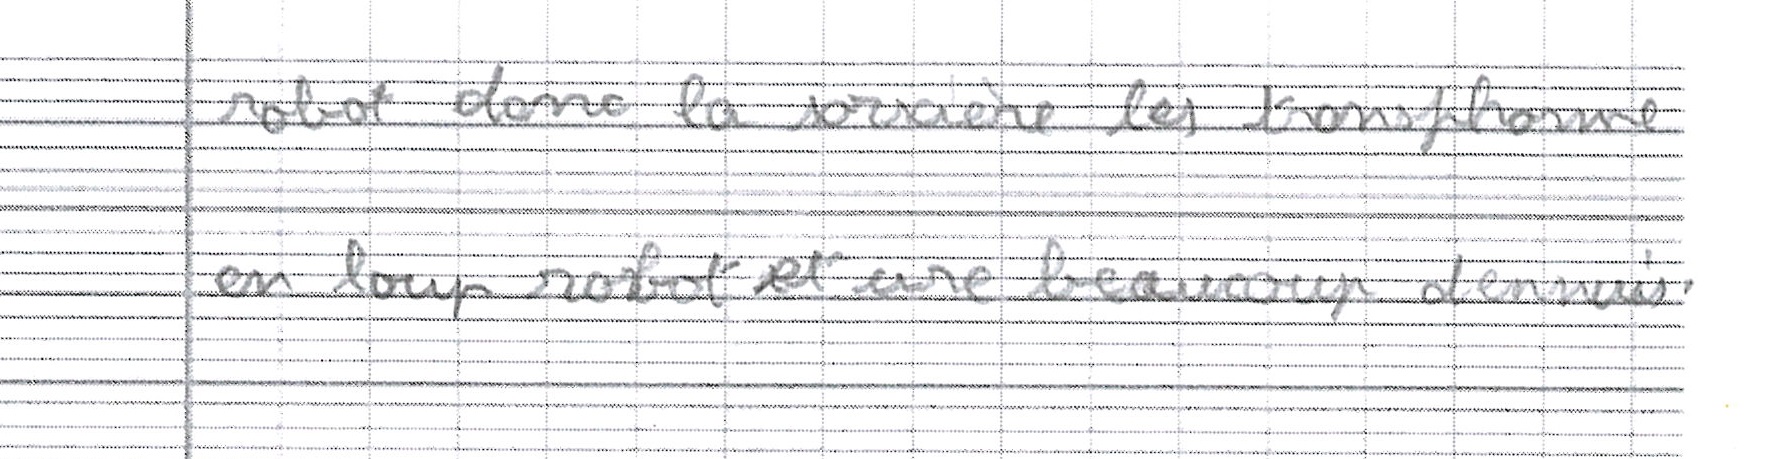 robot donc la sorcière les transphorme
en loup robot et ure beaucoup dennuis.